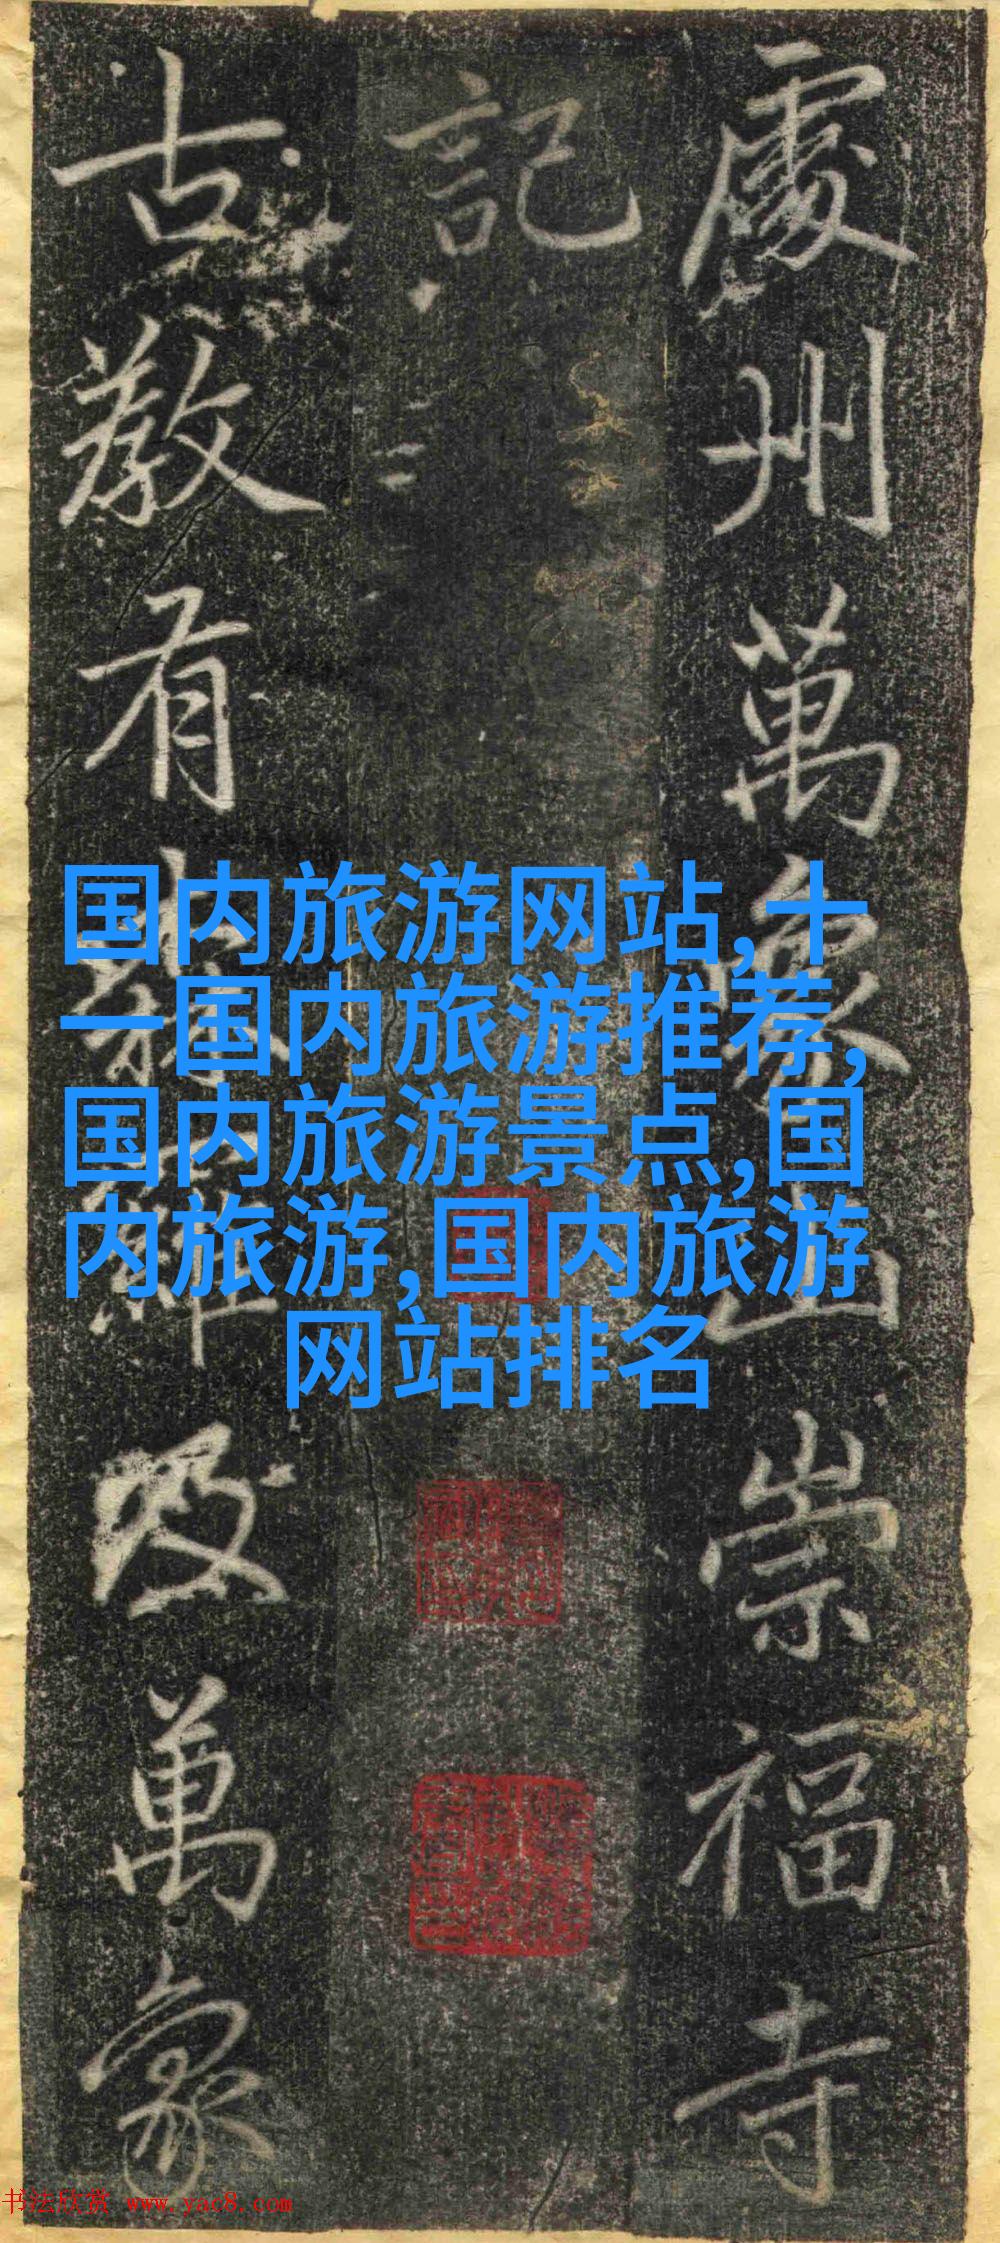 處州萬象山崇福寺
記
古教有萬象
国内旅游网站,十
一国内旅游推荐,
国内旅游景点,国
内旅游,国内旅游
网站排名
书法欣赏 www.yac8.com